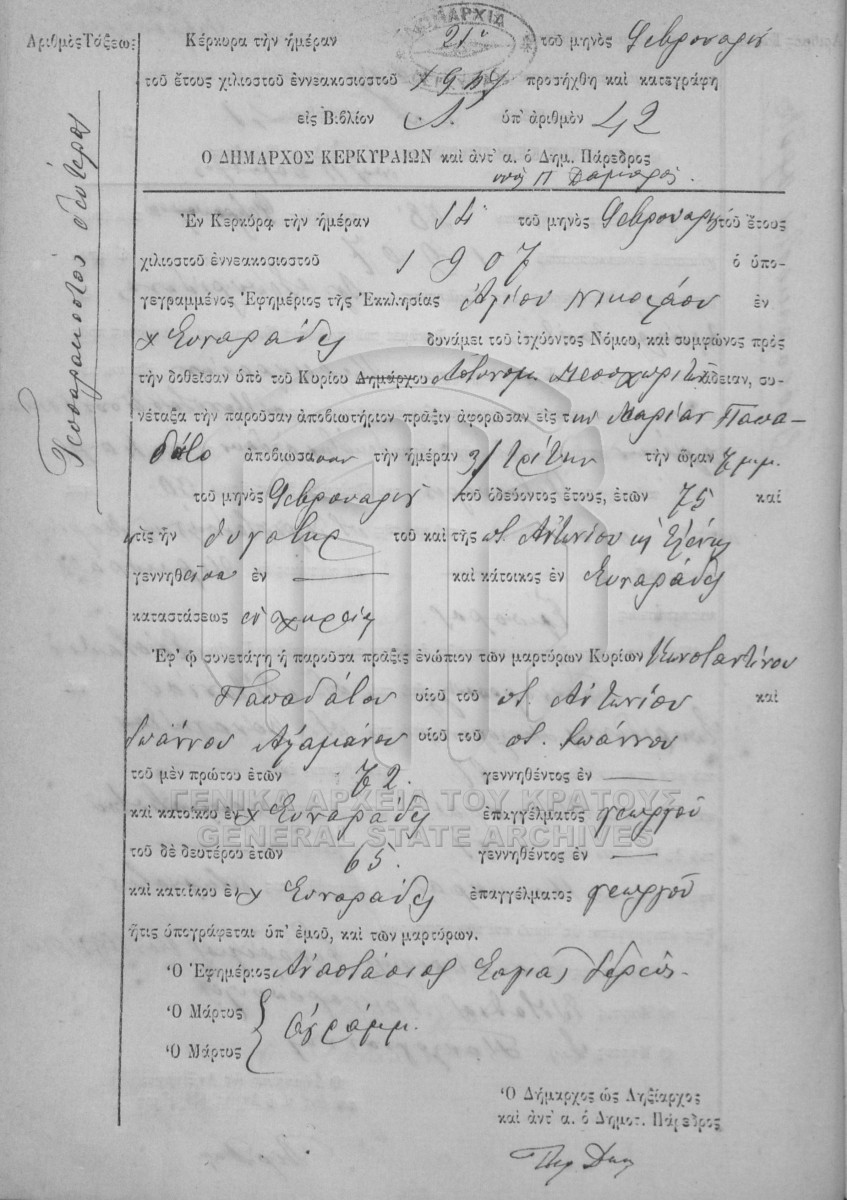 ΝΟΜΑΡΧΙΑ
Ἀριθμὸς Τάξεως
Τεσσαρακοστὸν δεύτερον
Κέρκυρα τὴν ἡμέραν 21ῃ τοῦ μηνὸς Φεβρουαρίου
τοῦ ἔτους χιλιοστοῦ ἐννεακοσιοστοῦ προσήχθη καὶ κατεγράφη
εἰς Βιβλίον Α. ὑπ' ἀριθμὸν 42
Ο ΔΗΜΑΡΧΟΣ ΚΕΡΚΥΡΑΙΩΝ καὶ ἀντ' α. ὁ Δημ. Πάρεδρος
Ἐν Κερκύρᾳ τὴν ἡμέραν 14 τοῦ μηνὸς Φεβρουαρίου τοῦ ἔτους
χιλιοστοῦ ἐννεακοσιοστοῦ 1907 ὁ ὑπο-
γεγραμμένος Ἐφημέριος τῆς Ἐκκλησίας Ἁγίου Νικολάου ἐν
χ Συναράδες δυνάμει τοῦ ἰσχύοντος Νόμου, καὶ συμφώνως πρὸς
τὴν δοθεῖσαν ὑπὸ τοῦ Κυρίου Δημάρχου Ἀστυνομ. Μεσοχωριτῶν ἄδειαν, συ-
νέταξα τὴν παροῦσαν ἀποβιωτήριον πρᾶξιν ἀφορῶσαν εἰς την Μαρίαν Παπα-
δάτο ἀποβιώσασαν τὴν ἡμέραν Τρίτην τὴν ὥραν 7 μμ.
τοῦ μηνὸς Φεβρουαρίου τοῦ ὁδεύοντος ἔτους, ἐτῶν 75 καὶ
ἥτις ἦν θυγάτηρ τοῦ καὶ τῆς ποτ. Ἀντωνίου κ Ἑλένης
γεννηθεῖσα ἐν — καὶ κάτοικος ἐν Συναράδες
καταστάσεως ἐν χηρείᾳ
Ἐφ' ᾧ συνετάγη ἡ παροῦσα πρᾶξις ἐνώπιον τῶν μαρτύρων Κυρίων Κωνσταντίνου
Παπαδάτου υἱοῦ τοῦ ποτ. Ἀντωνίου καὶ
Ἰωάννου Ἀλαμάνου υἱοῦ τοῦ ποτ. Ἰωάννου
τοῦ μὲν πρώτου ἐτῶν 72 γεννηθέντος ἐν —
καὶ κατοίκου ἐν χ Συναράδες ἐπαγγέλματος γεωργοῦ
τοῦ δὲ δευτέρου ἐτῶν 65. γεννηθέντος ἐν —
καὶ κατοίκου ἐν χ Συναράδες ἐπαγγέλματος γεωργοῦ
ἥτις ὑπογράφεται ὑπ' ἐμοῦ, καὶ τῶν μαρτύρων.
Ὁ Ἐφημέριος Ἀναστάσιος Ἱερεύς.
Ὁ Μάρτυς
Ἀγράμμ.
Ὁ Μάρτυς
Ὁ Δήμαρχος ὡς Ληξίαρχος
καὶ ἀντ' α. ὁ Δημοτ. Πάρεδρος
ΓΕΝΙΚΑ ΑΡΧΕΙΑ ΤΟΥ ΚΡΑΤΟΥΣ
GENERAL STATE ARCHIVES